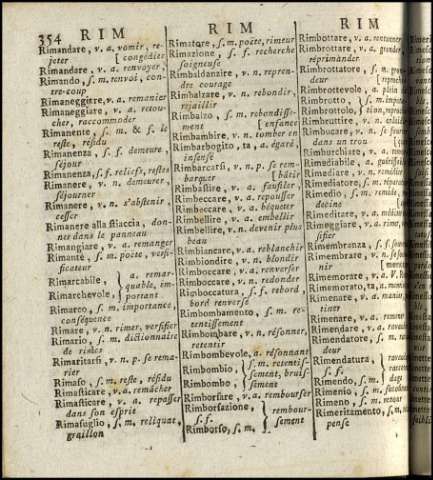 354 RIM
Rimandare, v. a. vomir, re-
jeter [congedier
Rimandare, v. a. renvoyer,
Rimando, s. m. renvoi, con-
tre-coup
Rimaneggiare, v. a. remanier
Rimaneggiare, v. a. retou-
cher, raccommoder
Rimanente, s. m. & f. le
reste, résidu
Rimanenza, s. f. demeure,
séjour
Rimanenza, s. f. reliefs, restes
Rimanere, v. n. demeurer,
séjourner
Rimanere, v. n. s'abstenir,
cesser
Rimanere alla stiaccia, don-
ner dans le panneau
Rimangiare, v. a. remanger
Rimante, s. m. poëte, versi-
ficateur
Rimarcabile, } a. remar-
Rimarchevole, } quable, im-
portant
Rimarco, s. m. importance,
conséquence
Rimare, v. n. rimer, versifier
Rimario, s. m. dictionnaire
de rimes
Rimaritarsi, v. n. p. se rema-
rier
Rimaso, s. m. reste, résidu
Rimasticare, v. a. remâcher
Rimasticare, v. a. repasser
dans son esprit
Rimasuglio, s. m. reliquat,
graillon
RIM
Rimatore, s. m. poëte, rimeur
Rimazione, s. f. recherche
soigneuse
Rimbaldanzire, v. n. repren-
dre courage
Rimbalzare, v. n. rebondir,
rejaillir
Rimbalzo, s. m. rebondisse-
ment [enfance
Rimbambire, v. n. tomber en
Rimbarbogito, ta, a. égaré,
insensé
Rimbarcarsi, v. n. p. se rem-
barquer [bâtir
Rimbastire, v. a. faufiler
Rimbeccare, v. a. repousser
Rimbeccare, v. a. béqueter
Rimbellire, v. a. embellir
Rimbellire, v. n. devenir plus
beau
Rimbiancare, v. a. reblanchir
Rimbiondire, v. n. blondir
Rimboccare, v. a. renverser
Rimboccare, v. n. redonder
Rimboccatura, s. f. rebord,
bord renversé
Rimbombamento, s. m. re-
tentissement
Rimbombare, v. n. résonner,
retentir
Rimbombevole, a. résonnant
Rimbombio, } s. m. retentis-
Rimbombo, } sement, bruis-
sement
Rimborsare, v. a. rembourser
Rimborsazione, } rembour-
s. f. } sement
Rimborso, s. m.
RIM
Rimbottare, v. a. entonner
Rimbrottare, v. a. gronder,
réprimander
Rimbrottatore, s. m.
Rimbrottevole, a. plaintif
Rimbrotto,
Rimbrottolo,
Rimbruttire, v. n.
Rimbucare, v. n. se
dans un trou
Rimburchiare, v. a.
Rimediabile, a.
Rimediare, v. n. remédier
Rimediatore, s. m.
Rimedio, s. m. remède,
decine
Rimeditare, v. a.
Rimeggiare, v. n. rimer,
sifier
Rimembranza, s. f.
Rimembrare, v. n.
nir
Rimemorare, v. a.
Rimemorato, ta, a.
Rimenare, v. a.
Rimenare, v. a. manier,
tinte
Rimendare, v. a.
Rimendatore, s. m.
Rimendatura,
s. f.
Rimendo, s. m.
Rimenio, s. m.
Rimeno, s. m.
Rimeritamento, s. m.
pense